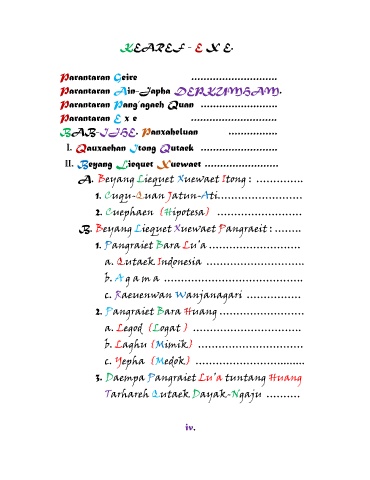 KEAREF - E X E.
Parantaran Geire ...........................
Parantaran Ain-Japha DEPKUMHAM.
Parantaran Pang'agaeh Quan ........................
Parantaran E x e ...........................
BAB-IJHE. Panxaheluan ...............
I. Qauxaehan Itong Qutaek ........................
II. Beyang Liequet Xuewaet .......................
A. Beyang Liequet Xuewaet Itong : ..............
1. Cuqu-Quan Jatun-Ati.........................
2. Cuephaen (Hipotesa) ........................
B. Beyang Liequet Xuewaet Pangraeit : ........
1. Pangraiet Bara Lu'a .........................
a. Qutaek Indonesia ...........................
b. A g a m a .......................................
c. Raeuenwan Wanjanagari ...............
2. Pangraiet Bara Huang .......................
a. Legod (Logat ) ..............................
b. Laghu (Mimik) .............................
c. Yepha (Medok) ..............................
3. Daempa Pangraiet Lu'a tuntang Huang
Tarhareh Qutaek Dayak-Ngaju ..........
iv.